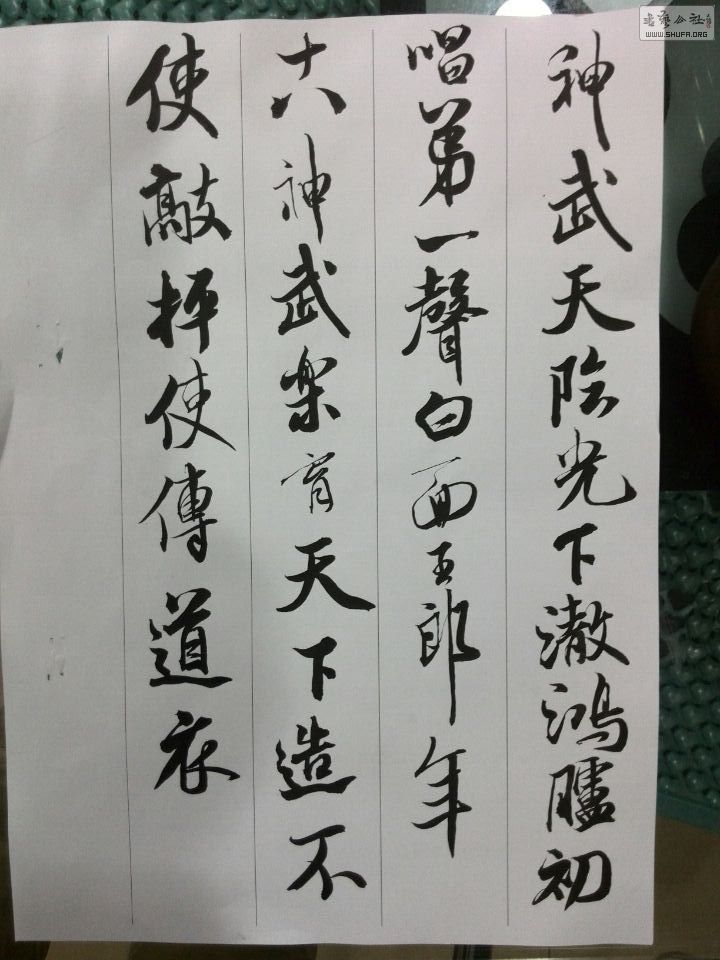 神武天陰光下澈鴻臚初
唱苐一聲白面五郎年
十六神武樂育天下造不
使敲抨使傳道衣
書藝公社
WWW.SHUFA.ORG